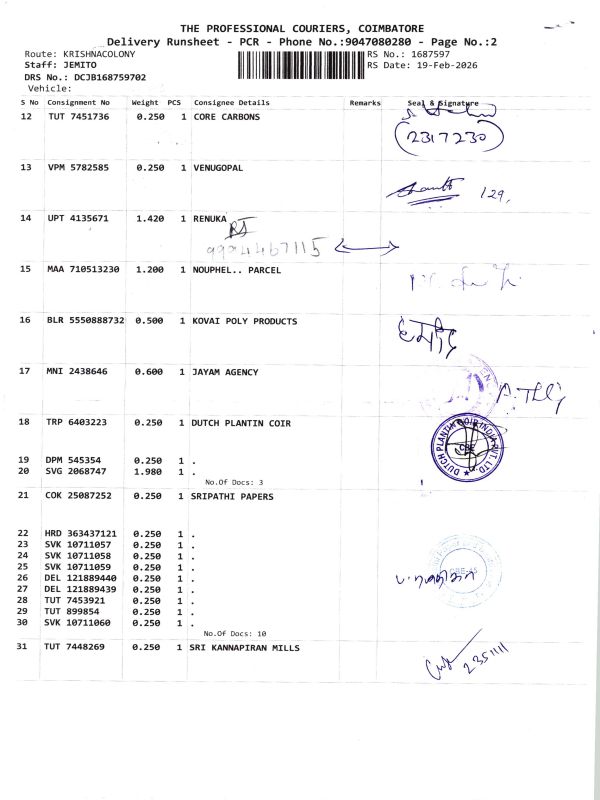 THE PROFESSIONAL COURIERS, COIMBATORE
Delivery Runsheet - PCR - Phone No.:9047080280 - Page No.:2
Route: KRISHNACOLONY RS No.: 1687597
Staff: JEMITO RS Date: 19-Feb-2026
DRS No.: DCJB168759702
Vehicle:
S No Consignment No Weight PCS Consignee Details Remarks Seal & Signature
12 TUT 7451736 0.250 1 CORE CARBONS
2317230
13 VPM 5782585 0.250 1 VENUGOPAL
129,
14 UPT 4135671 1.420 1 RENUKA
15 MAA 710513230 1.200 1 NOUPHEL.. PARCEL
16 BLR 5550888732 0.500 1 KOVAI POLY PRODUCTS
17 MNI 2438646 0.600 1 JAYAM AGENCY
18 TRP 6403223 0.250 1 DUTCH PLANTIN COIR
DUTCH PLANTIN COIR INDIA PVT. LTD
CBE
19 DPM 545354 0.250 1 .
20 SVG 2068747 1.980 1 .
No.Of Docs: 3
21 COK 25087252 0.250 1 SRIPATHI PAPERS
22 HRD 363437121 0.250 1 .
23 SVK 10711057 0.250 1 .
24 SVK 10711058 0.250 1 .
25 SVK 10711059 0.250 1 .
26 DEL 121889440 0.250 1 .
27 DEL 121889439 0.250 1 .
28 TUT 7453921 0.250 1 .
29 TUT 899854 0.250 1 .
30 SVK 10711060 0.250 1 .
No.Of Docs: 10
31 TUT 7448269 0.250 1 SRI KANNAPIRAN MILLS